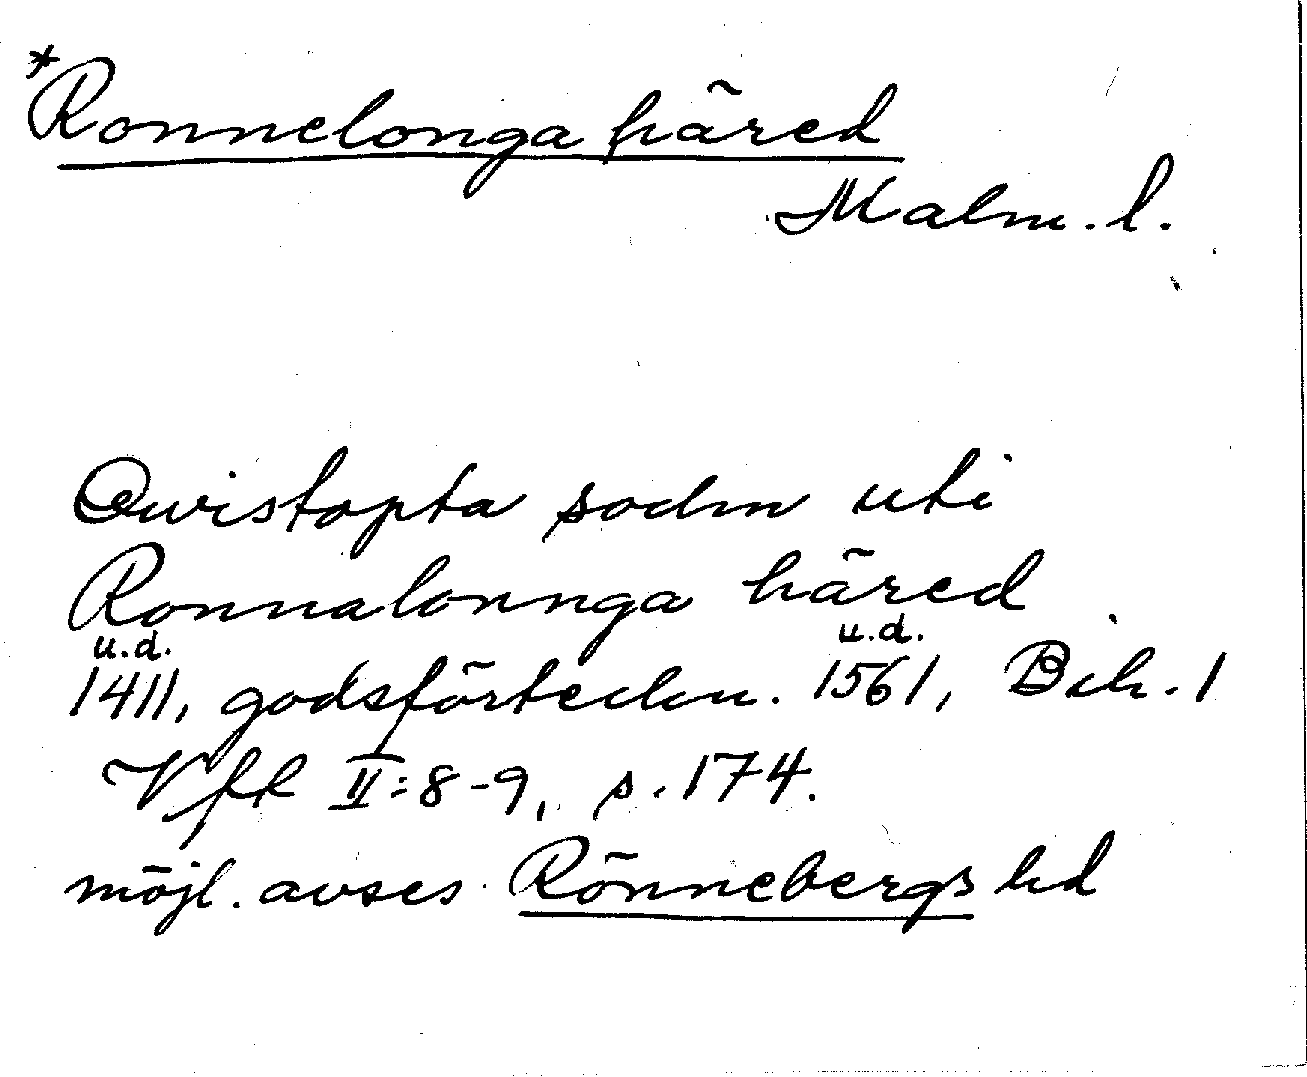 *Ronnelonga häred
Malm. l.
Qwistopta sodm uti
Ronnalonnga häred
u.d. u.d.
1411, godsförteckn. 1561, Bih. 1
Vfr II:8-9, s. 174.
möjl. avses Rönnebergs hd